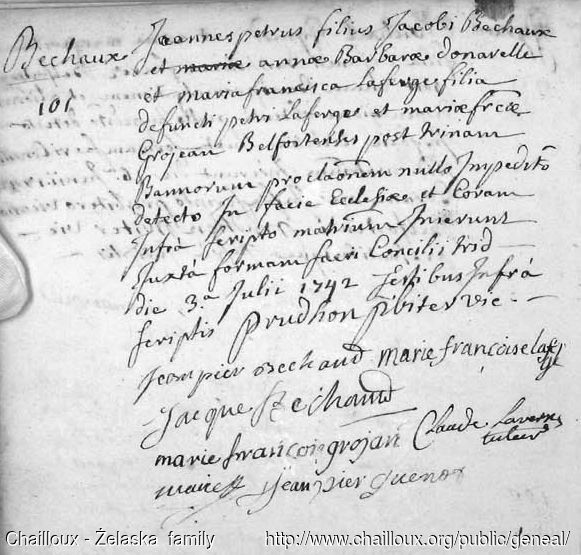 Bechaux
101
Joannes petrus filius Jacobi Bechaux
et marie annæ Barbaræ donavelle
et maria francisca laferge filia
defuncti petri laferge et mariæ frcæ
Grojean Belfortensis post trinam
Bannorum proclaonem nullo Impedito
detecto In facie Ecclesiæ et Coram
Infrà scripto matrium Inierunt
Juxtà formam sacri Concilii trid
die 3a Julii 1742 testibus Infrà
scriptis Prudhon pbiter vic
jean pier bechaud marie françoise
Jacque Bechaud
marie françoi grojan Claude
tuteur
jean pier guenot
Chailloux - Żelaska family http://www.chailloux.org/public/geneal/